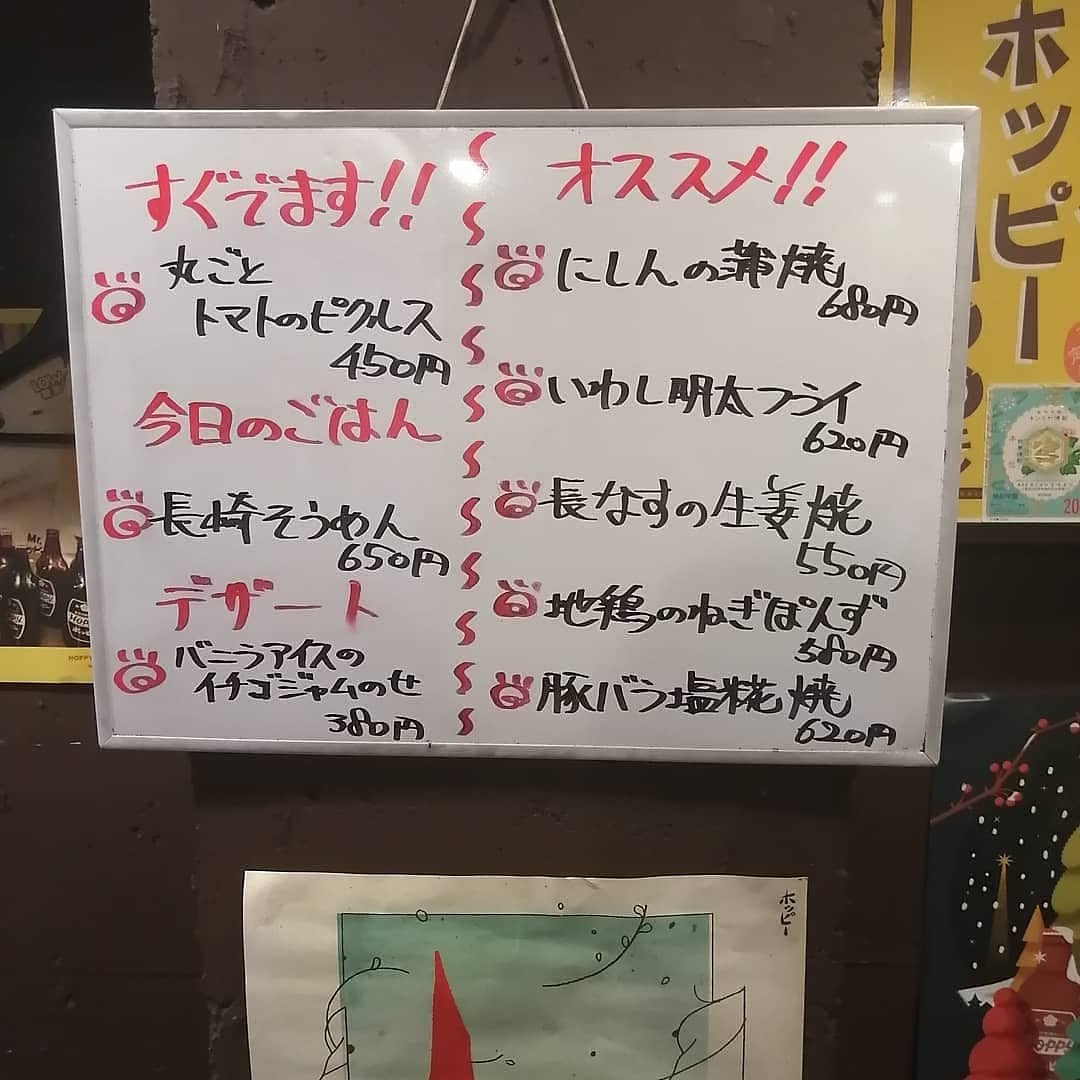 すぐでます!!
丸ごと
トマトのピクルス
450円
今日のごはん
長崎そうめん
650円
デザート
バニラアイスの
イチゴジャムのせ
380円
オススメ!!
にしんの蒲焼
680円
いわし明太フライ
620円
長なすの生姜焼
550円
地鶏のねぎぽんず
580円
豚バラ塩糀焼
620円
ホッピー
ホッピー
HOPPY